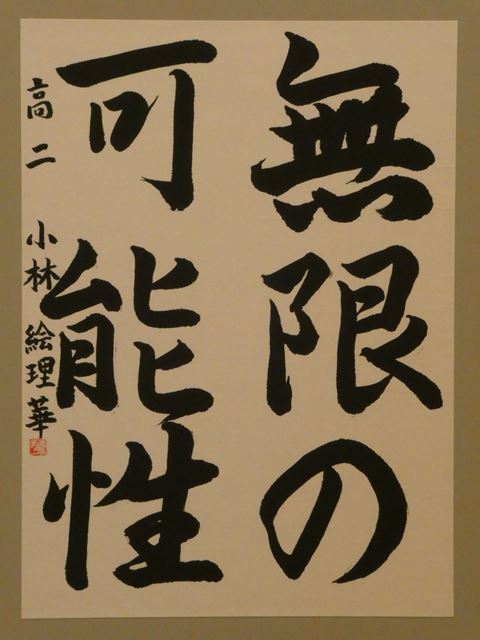 無限の
可能性
高二 小林絵理華